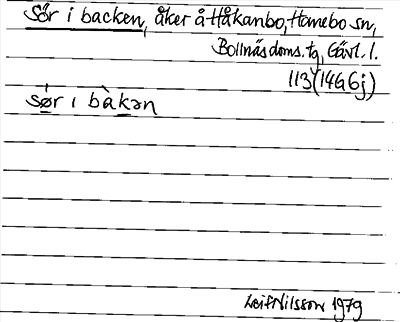 Sör i backen, åker å Håkanbo, Hanebo sn,
Bollnäs doms. tg, Gävl. l.
113 (14G6j)
sø̱ŕ i bàḵən
Leif Nilsson 1979